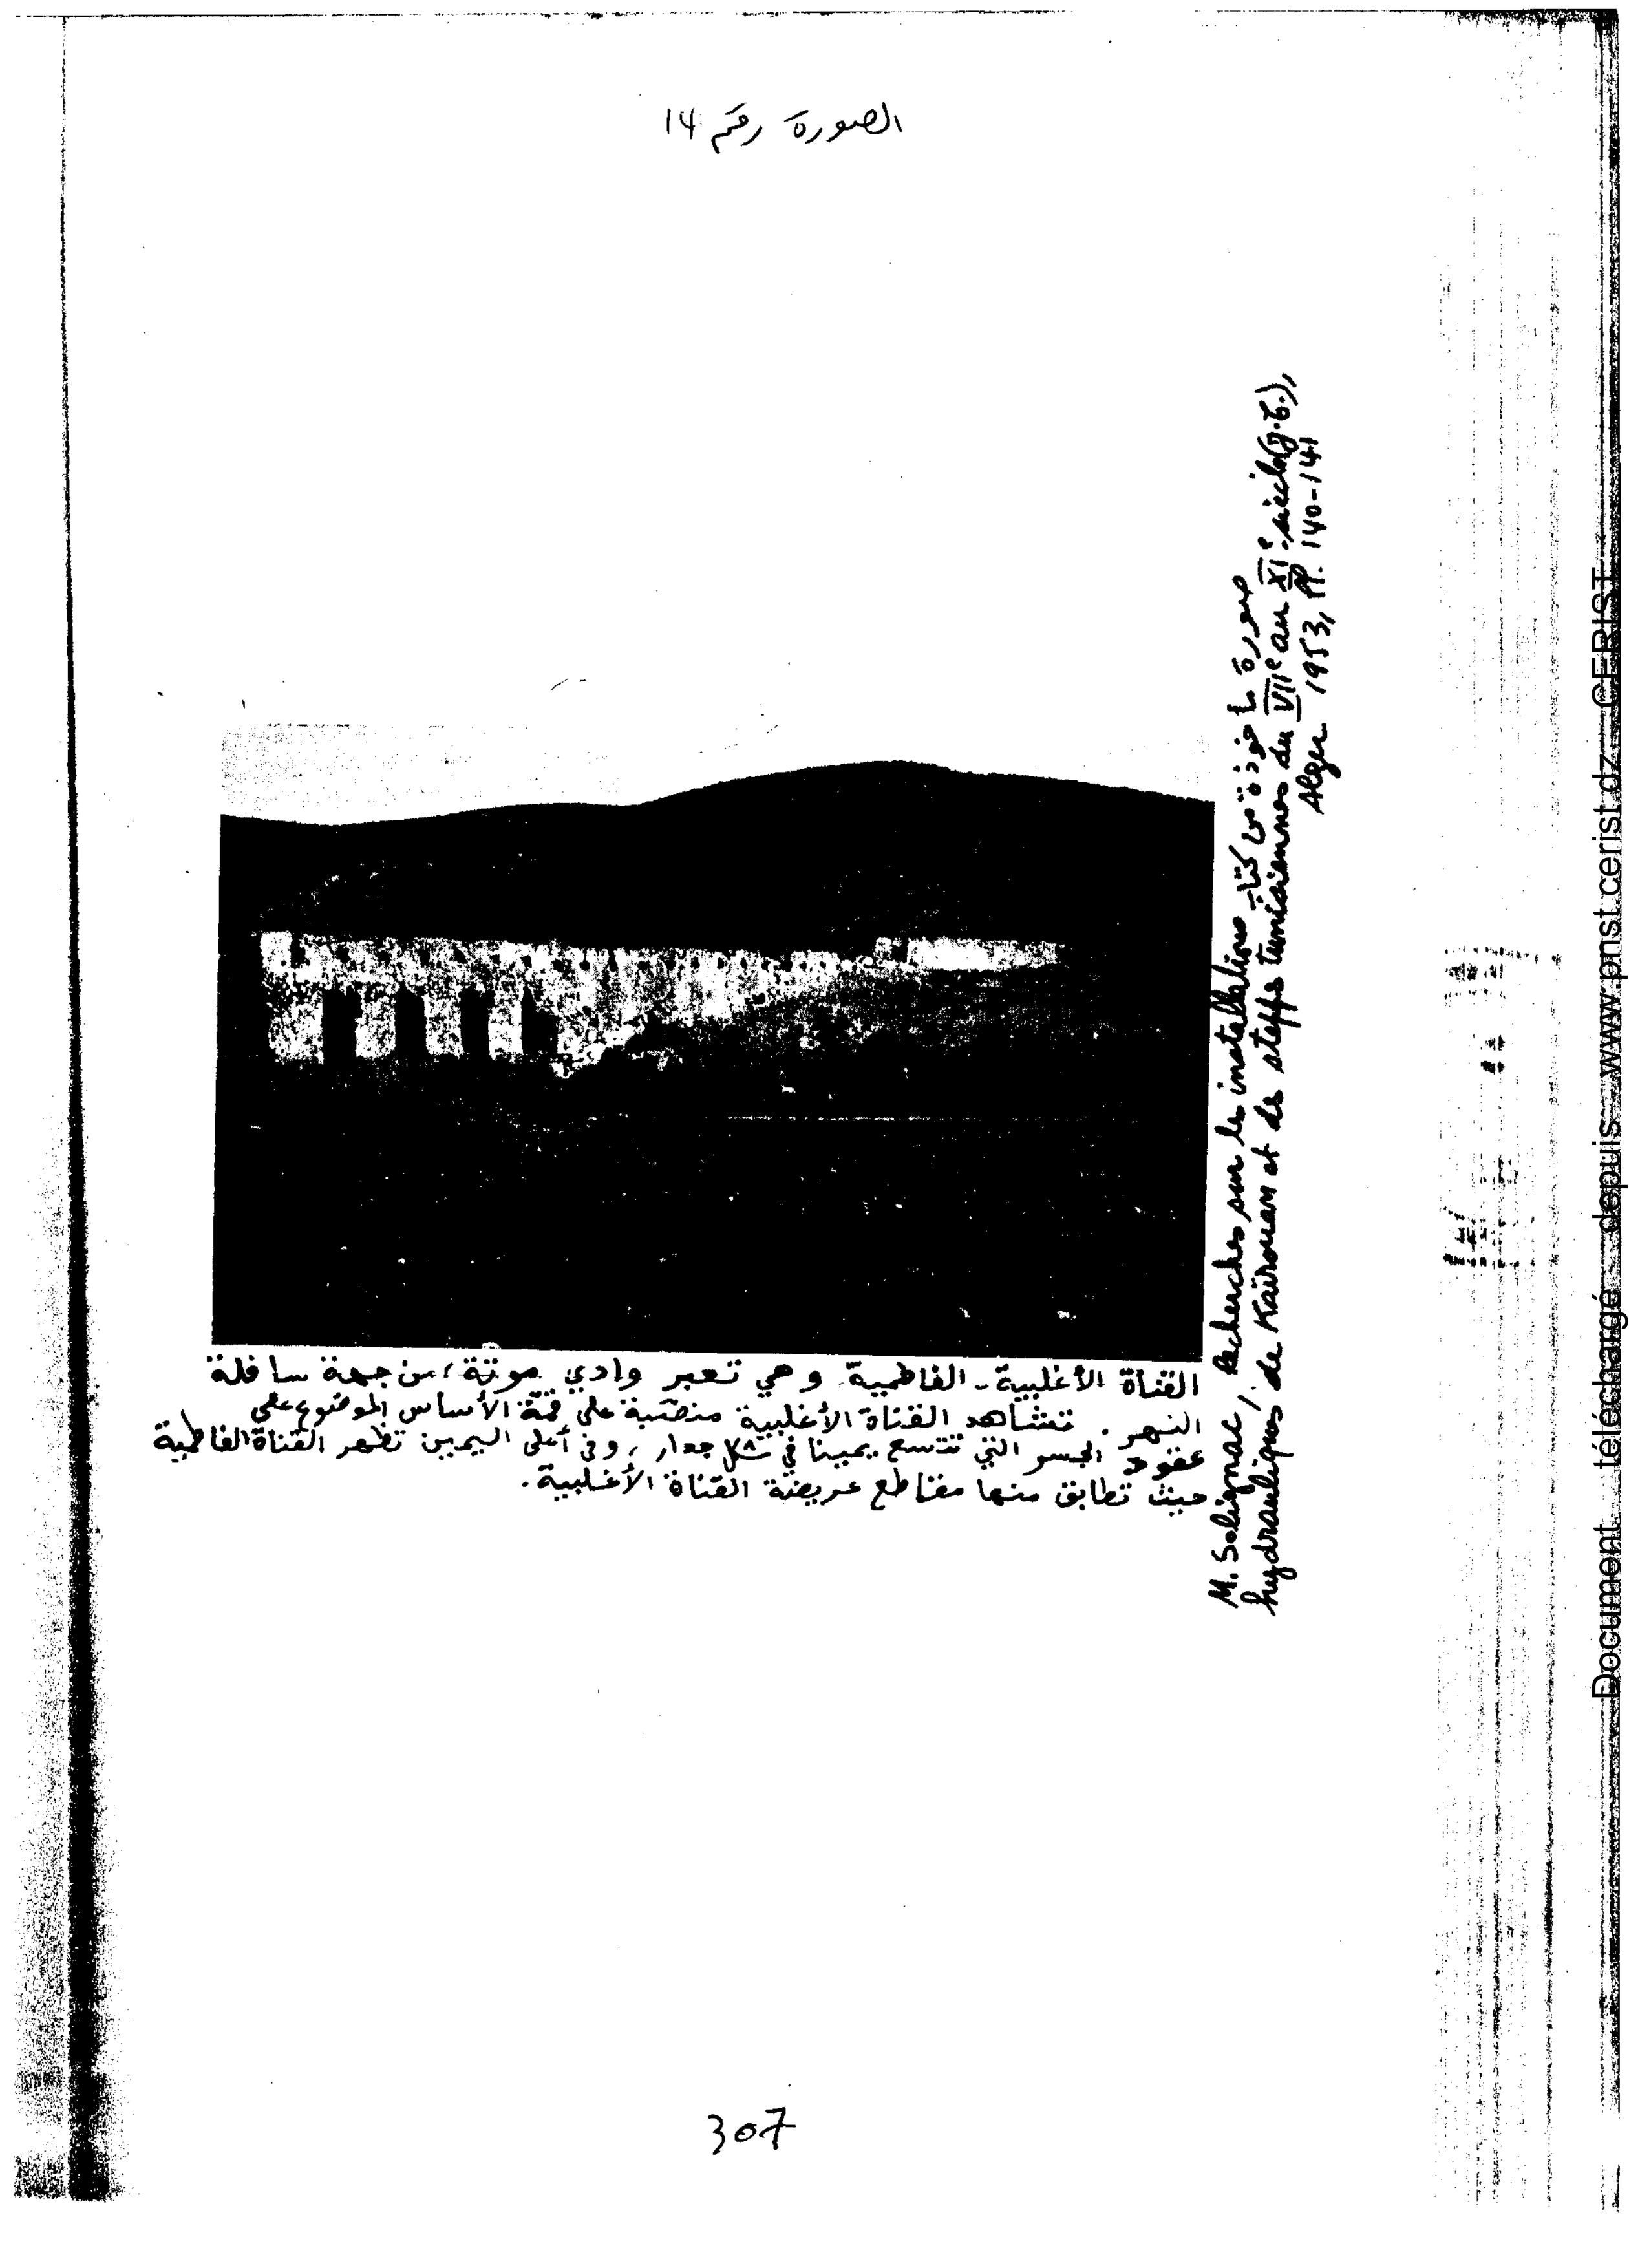 الصورة رقم 14
القناة الأغلبية - الفاطمية وهي تعبر وادي موتة، من جهة سافلة
النهر. تشاهد القناة الأغلبية منصبة على قمة الأساس الموضوع على
عقود الجسر التي تتسع يمينا في شكل جدار، وفي أعلى اليمين تظهر القناة الفاطمية
حيث تطابق منها مقاطع عريضة القناة الأغلبية.
صورة مأخوذة من كتاب
M. Solignac, Recherches sur les installations
hydrauliques de Kairouan et de steppes tunisiennes du VIIe au XIe siècle (J.C.),
Alger 1953, PP. 140-141
307
Document téléchargé depuis www.pnst.cerist.dz CERIST